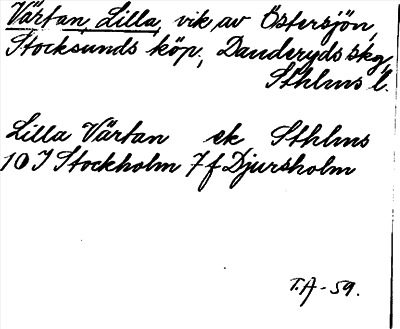 Värtan, Lilla, vik av Östersjön,
Stocksunds köp., Danderyds skg,
Sthlms l.
Lilla Värtan ek Sthlms
10 I Stockholm 7 f Djursholm
T.A-59.